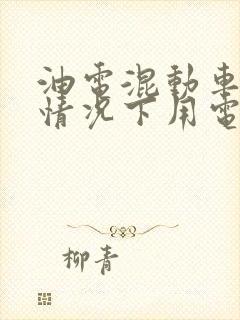 油電混動車
情況下用電
柳青